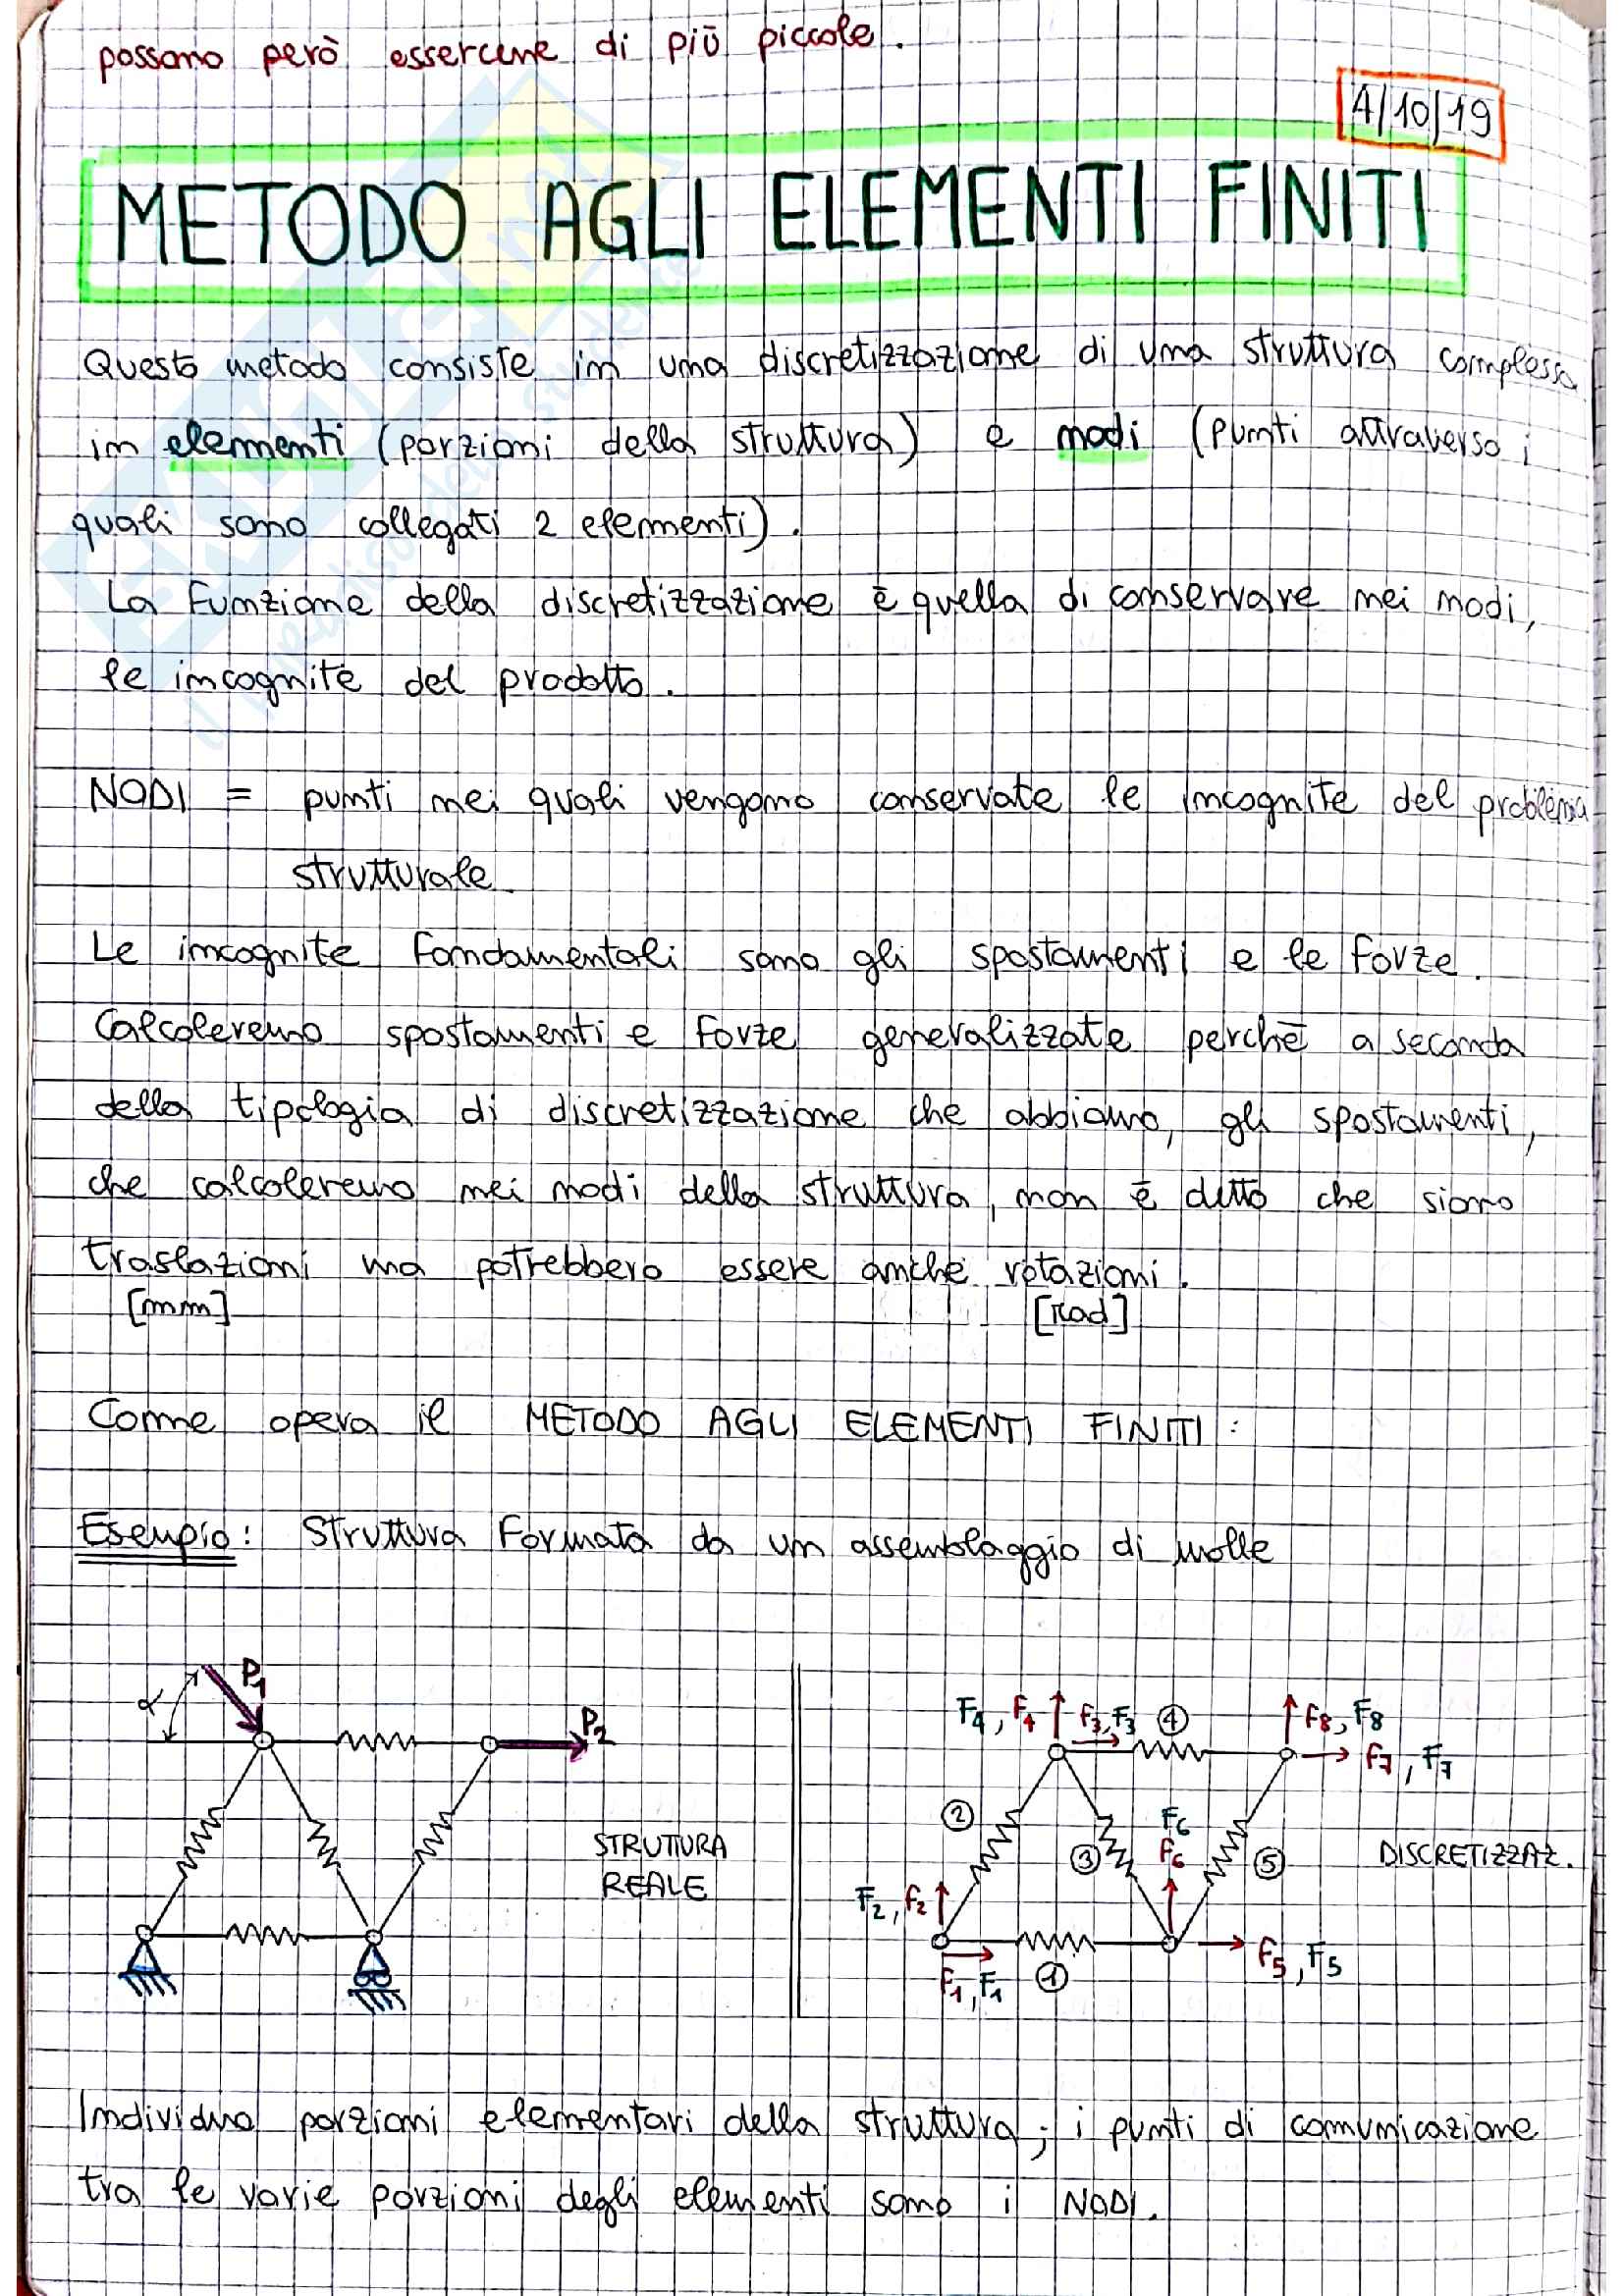 possono però essercene di più piccole.
4/10/19
METODO AGLI ELEMENTI FINITI
Questo metodo consiste in una discretizzazione di una struttura complessa
in elementi (porzioni della struttura) e nodi (punti attraverso i
quali sono collegati 2 elementi).
La funzione della discretizzazione è quella di conservare nei nodi,
le incognite del prodotto.
NODI = punti nei quali vengono conservate le incognite del problema
strutturale
Le incognite fondamentali sono gli spostamenti e le forze.
Calcoleremo spostamenti e forze generalizzate perchè a seconda
della tipologia di discretizzazione che abbiamo, gli spostamenti,
che calcoleremo nei nodi della struttura, non è detto che siano
traslazioni ma potrebbero essere anche rotazioni.
[mm] [rad]
Come opera il METODO AGLI ELEMENTI FINITI:
Esempio: Struttura formata da un assemblaggio di molle
α P1 P2
STRUTTURA
REALE
F4, f4 f3, F3 4 f8, F8
f7, F7
2 3 F6
f6 5
DISCRETIZZAZ.
F2, f2
f1, F1 1 f5, F5
Individuo porzioni elementari della struttura; i punti di comunicazione
tra le varie porzioni degli elementi sono i NODI.